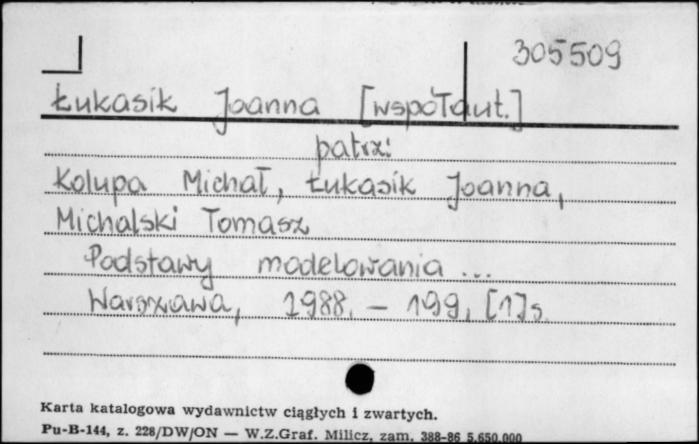 305509
Łukasik Joanna [współaut.]
patrz:
Kolupa Michał, Łukasik Joanna,
Michalski Tomasz
Podstawy modelowania ...
Warszawa, 1988. – 199, [1] s.
Karta katalogowa wydawnictw ciągłych i zwartych.
Pu-B-144, z. 228/DW/ON — W.Z.Graf. Milicz, zam. 388-86 5.650.000